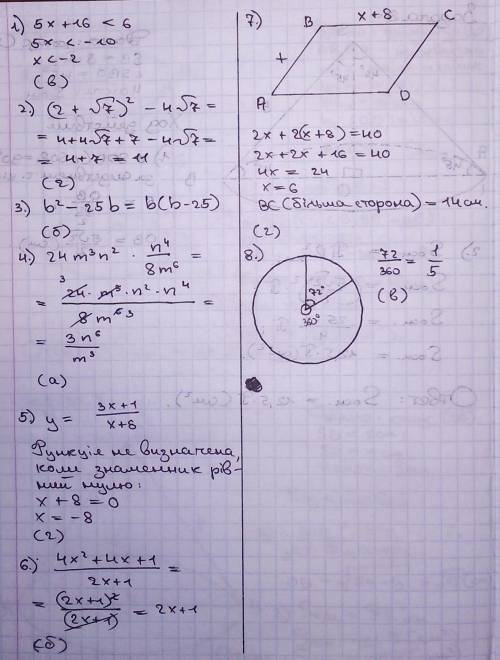 1) 5x + 16 < 6
5x < -10
x < -2
(в)
2.) (2 + √7)² - 4√7 =
= 4+4√7 + 7 - 4√7 =
= 4+7 = 11
(г)
3.) b² - 25b = b(b-25)
(б)
4.) 24m³n² · n⁴/8m⁶ =
= 24·m³·n²·n⁴/8m⁶ =
= 3n⁶/m³
(а)
5) y = 3x+1/x+8
Функція не визначена,
коли знаменник рів-
ний нулю:
x + 8 = 0
x = -8
(г)
6.) 4x²+4x+1/2x+1 =
= (2x+1)²/(2x+1) = 2x+1
(б)
7.) B x+8 C
x
A D
2x + 2(x+8) = 40
2x + 2x + 16 = 40
4x = 24
x = 6
BC (більша сторона) = 14 см.
(г)
8.) 72/360 = 1/5
72°
360°
(в)